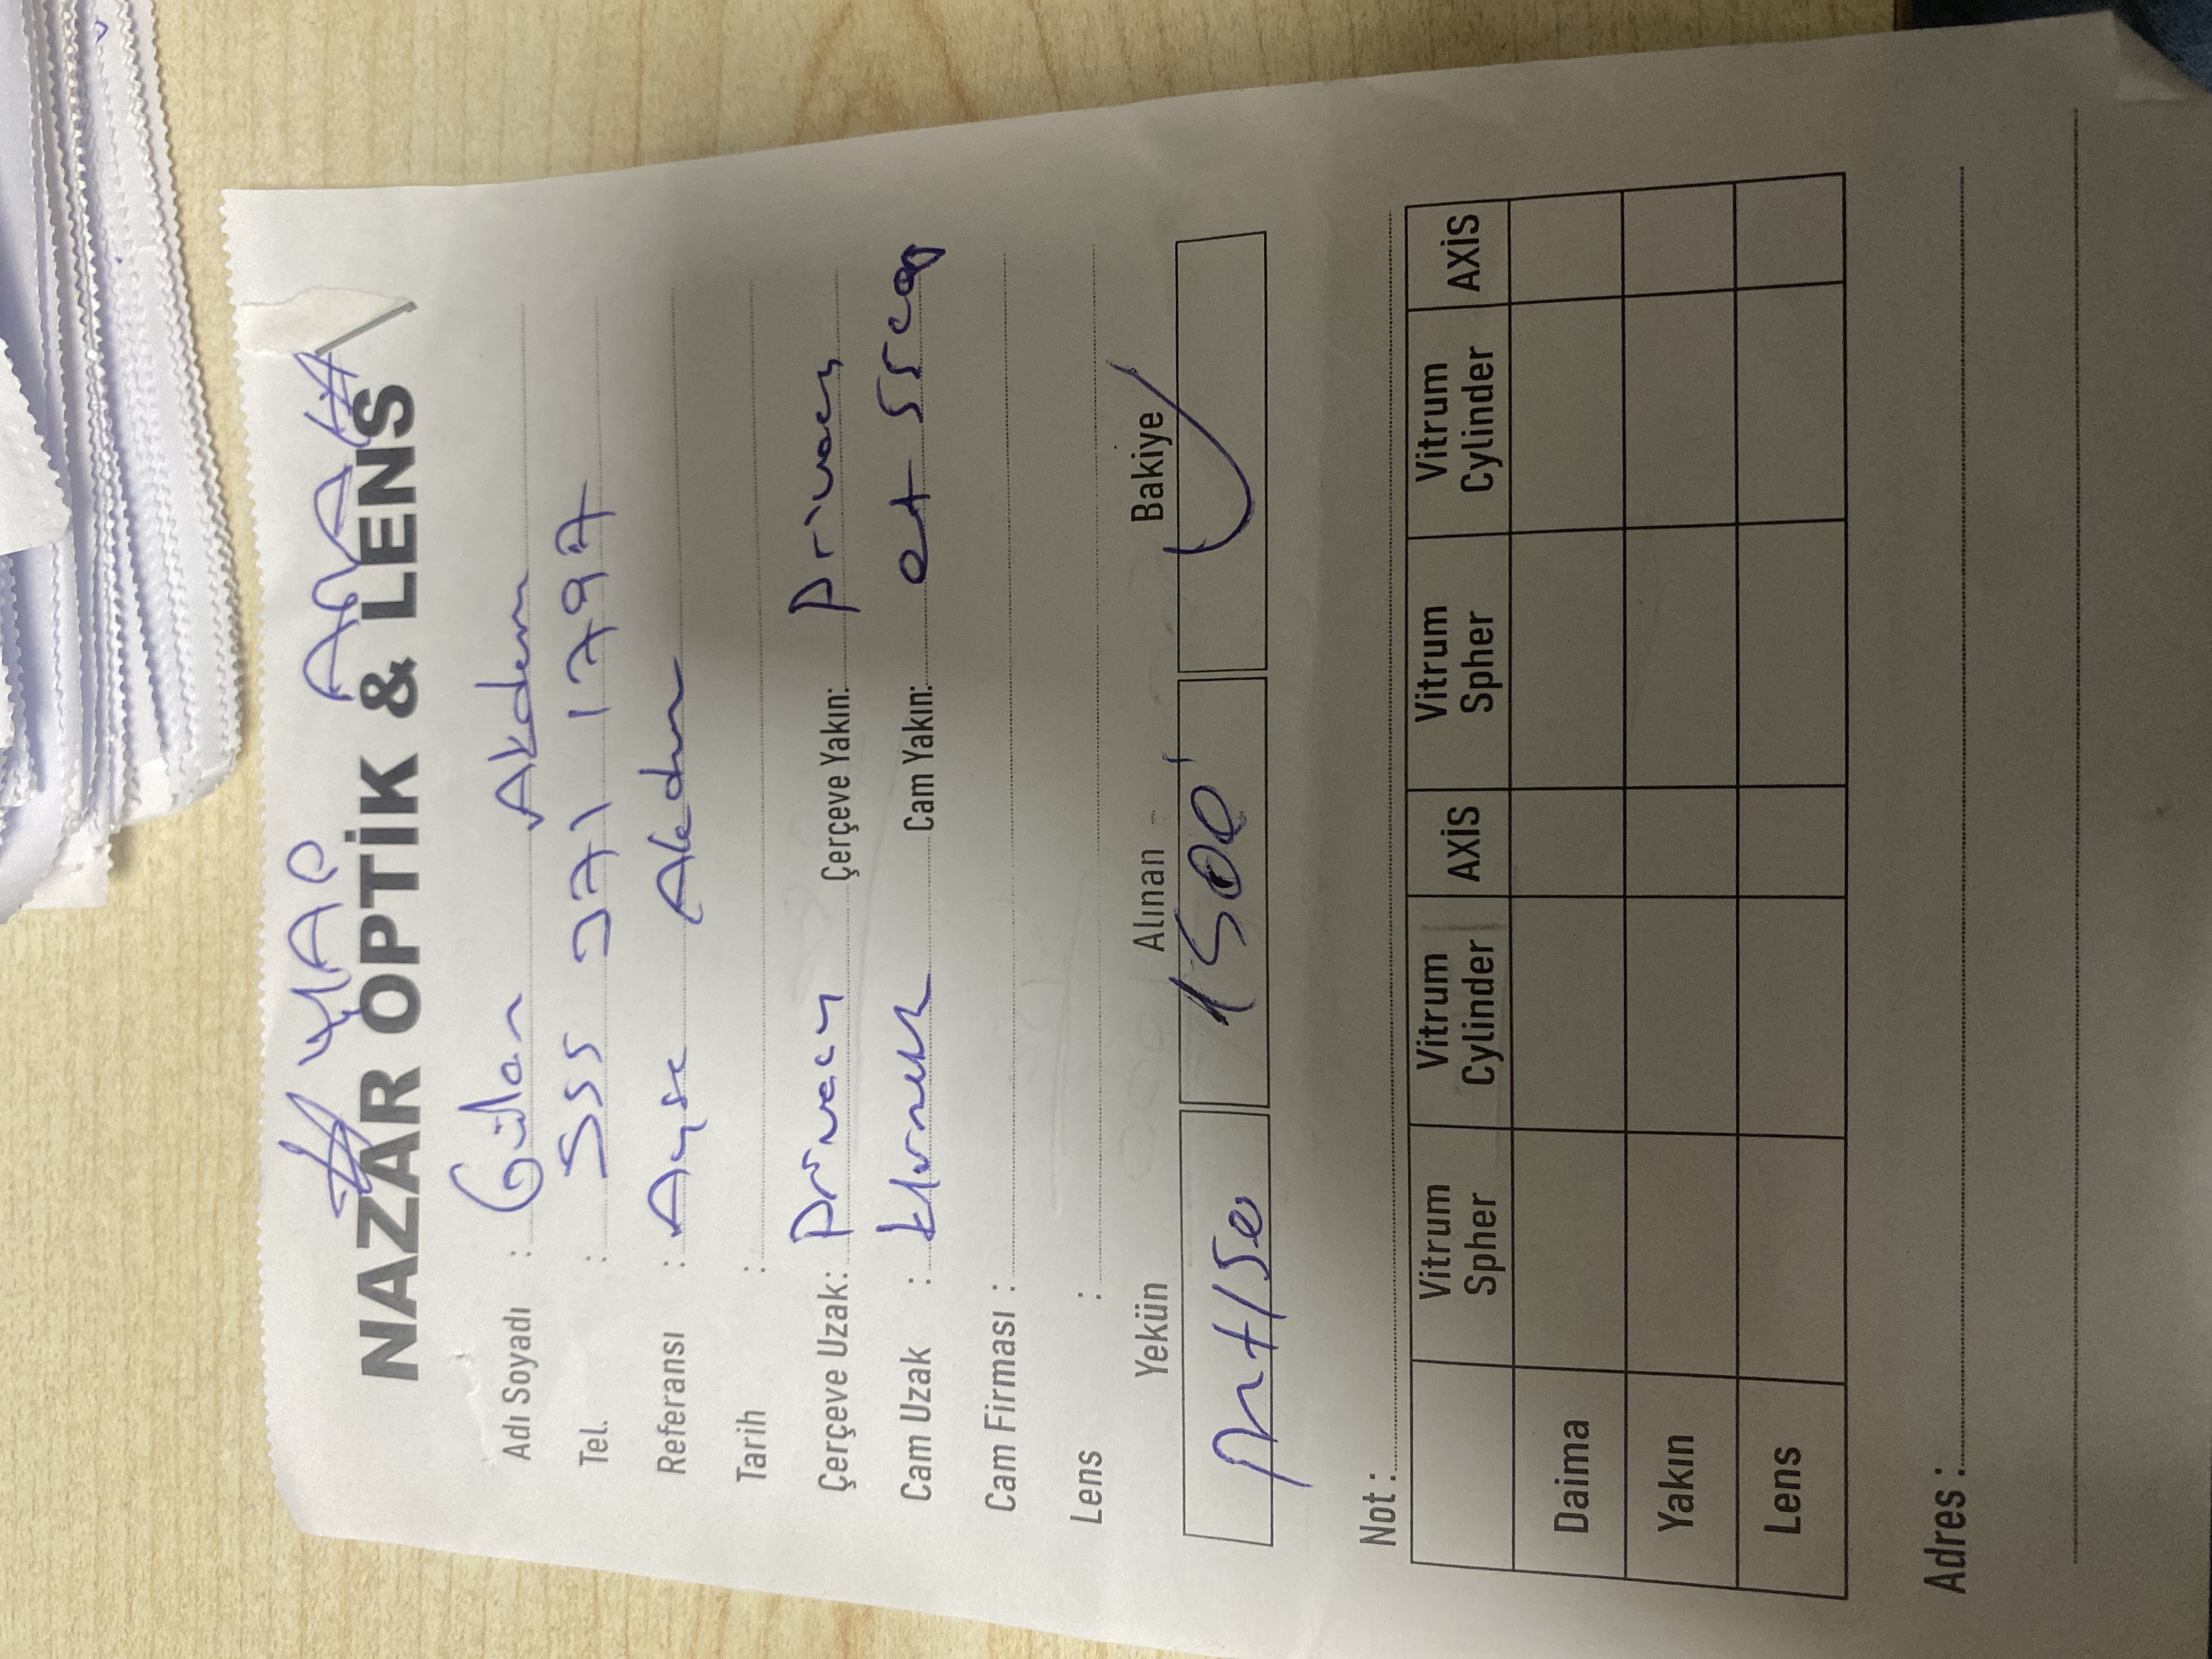 YAP ARA
NAZAR OPTİK & LENS
Adı Soyadı : Gülan Akdem
Tel. : 555 971 1797
Referansı : Ayse Akdem
Tarih :
Çerçeve Uzak: Privacy Çerçeve Yakın: Privacy
Cam Uzak : Cam Yakın: 55
Cam Firması :
Lens :
Yekün Alınan Bakiye
1500
Not :
Vitrum Spher Vitrum Cylinder AXİS Vitrum Spher Vitrum Cylinder AXİS
Daima
Yakın
Lens
Adres :